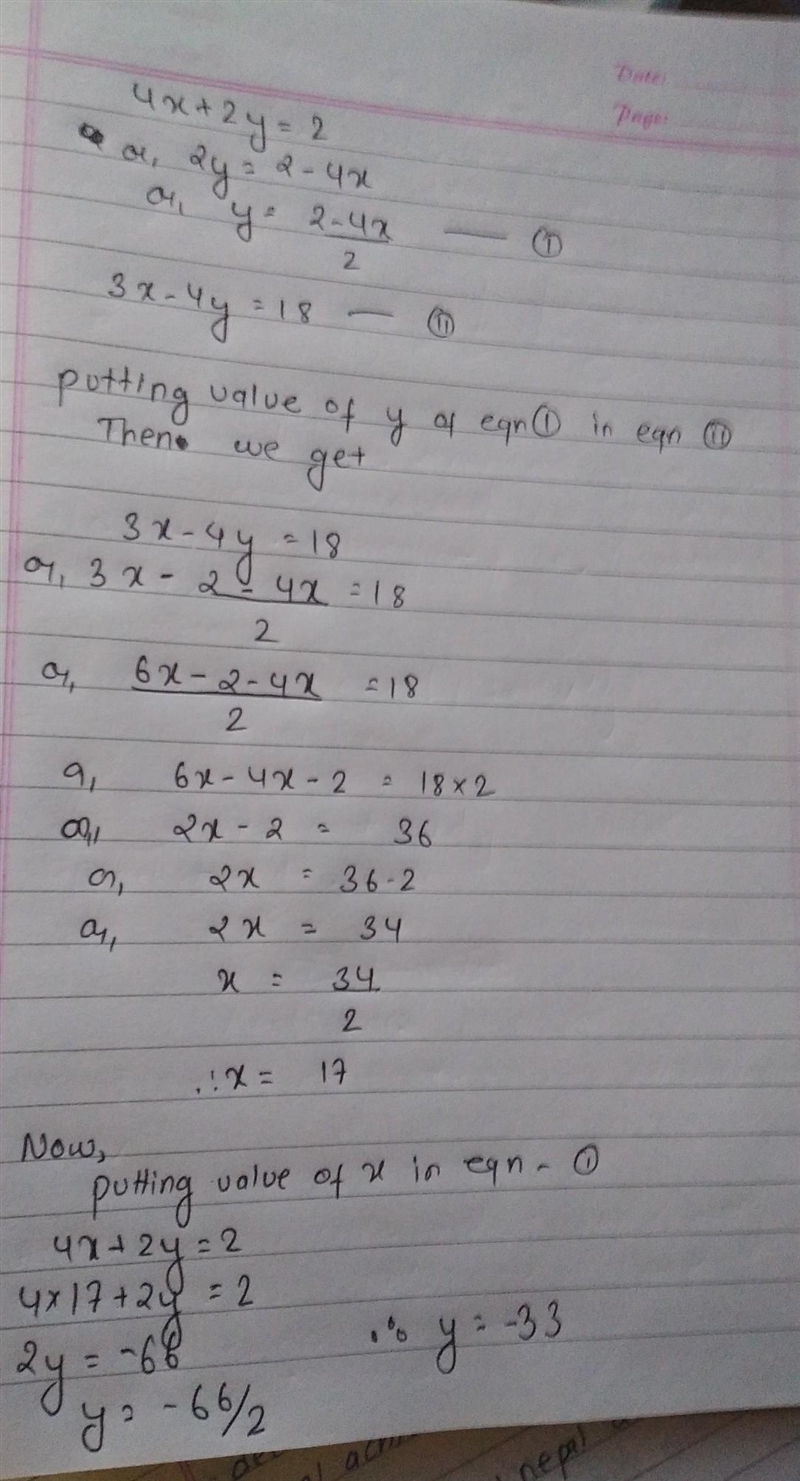 Date:
Page:
4x + 2y = 2
or, 2y = 2 - 4x
or, y = 2 - 4x / 2 — ①
3x - 4y = 18 — ⑪
putting value of y of eqn ① in eqn ⑪
Then we get
3x - 4y = 18
or, 3x - 2 - 4x / 2 = 18
or, 6x - 2 - 4x / 2 = 18
or, 6x - 4x - 2 = 18 × 2
or, 2x - 2 = 36
or, 2x = 36 - 2
or, 2x = 34
x = 34 / 2
∴ x = 17
Now,
putting value of x in eqn - ①
4x + 2y = 2
4 × 17 + 2y = 2
2y = -66
y = -66/2 ∴ y = -33
nepal